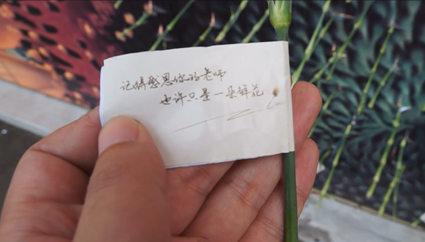 记得感恩你的老师
也许只是一朵鲜花